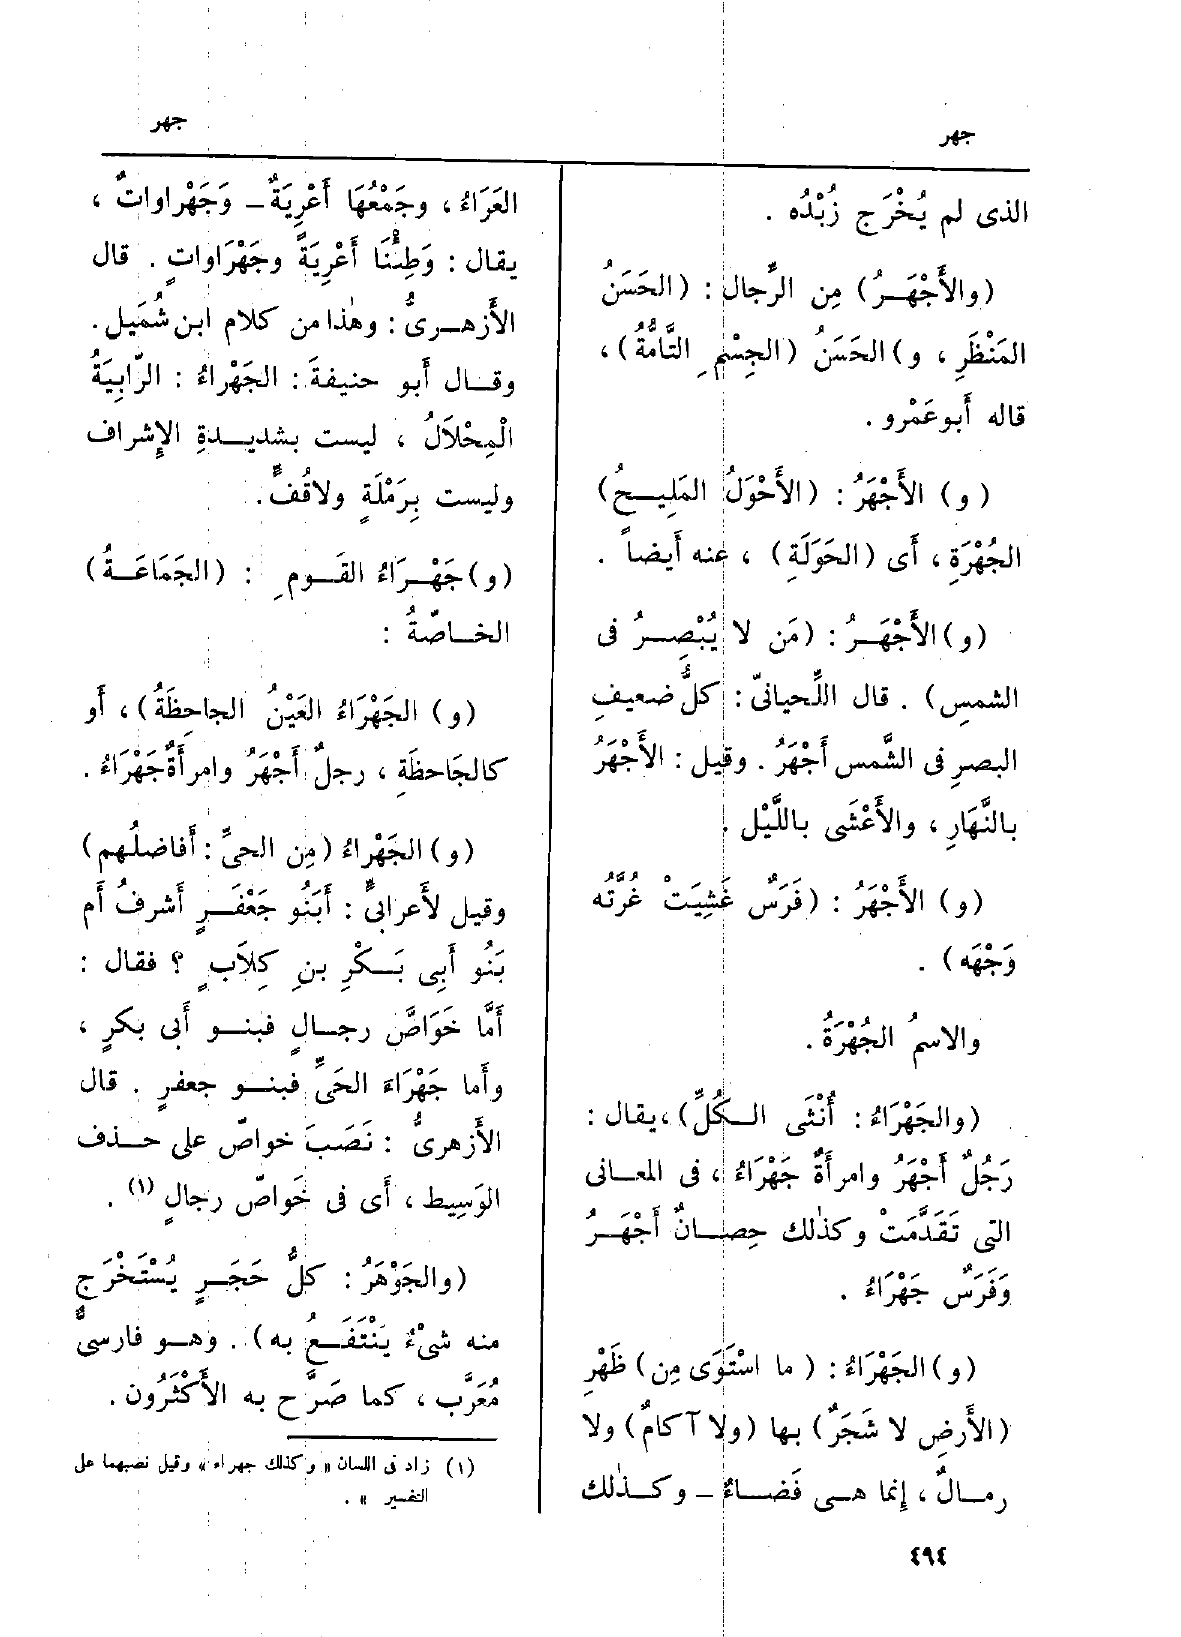 جهر
جهر
الذى لم يُخْرَج زُبْدُه .
(والأَجْهَــرُ) مِن الرِّجال : (الحَسَنُ
المَنْظَرِ ، و) الحَسَنُ (الجِسْمِ التَّامُّهُ) ،
قاله أَبو عَمْرو .
(و) الأَجْهَرُ : (الأَحْوَلُ المَلِيــحُ)
الجُهْرَةِ ، أَى (الحَوَلَةِ) ، عنه أَيضاً .
(و) الأَجْهَــرُ : (مَن لا يُبْصِــرُ فى
الشمسِ) . قال اللِّحيانىّ : كلُّ ضعيفِ
البصرِ فى الشَّمس أَجْهَرُ . وقيل : الأَجْهَرُ
بالنَّهَارِ ، والأَعْشَى باللَّيْل .
(و) الأَجْهَرُ : (فَرَسٌ غَشِيَتْ غُرَّتُه
وَجْهَه) .
والاسمُ الجُهْرَةُ .
(والجَهْرَاءُ : أُنْثَى الــكُلِّ) ، يقال :
رَجُلٌ أَجْهَرُ وامرأَةٌ جَهْرَاءُ ، فى المعــانى
التى تَقَدَّمَتْ وكذٰلك حِصــانٌ أَجْهَــرُ
وَفَرَسٌ جَهْرَاءُ .
(و) الجَهْرَاءُ : ( ما اسْتَوَى مِن) ظَهْرِ
(الأَرضِ لا شَجَرٌ) بها (ولا آكامٌ) ولا
رمــالٌ ، إِنما هــى فَضــاءٌ – وكــذٰلك
العَرَاءُ ، وجَمْعُهَا أَعْرِيَةٌ – وَجَهْراواتٌ ،
يقال : وَطِئْنَا أَعْرِيَةً وجَهْرَاواتٍ . قال
الأَزهــرىُّ : وهٰذا من كلام ابن شُمَيل .
وقــال أَبو حنيفةَ : الجَهْراءُ : الرّابِيَةُ
الْمِحْلَالُ ، ليست بشديــدةِ الإِشراف
وليست بِرَمْلَةٍ ولا قُفٍّ .
(و) جَهْــرَاءُ القَــومِ : (الجَمَاعَــةُ)
الخــاصّةُ :
(و) الجَهْرَاءُ العَيْنُ الجاحِظَةُ) ، أَو
كالجَاحظَةِ ، رجلٌ أَجْهَرُ وامرأَةٌ جَهْرَاءُ .
(و) الجَهْراءُ (مِن الحىِّ : أَفاضلُهم)
وقيل لأَعرابىٍّ : أَبَنُو جَعْفَــرٍ أَشرفُ أَم
بَنُو أَبِى بَــكْرِ بنِ كِلَابٍ ؟ فقال :
أَمَّا خَوَاصَّ رجــالٍ فبنــو أَبى بكرٍ ،
وأَما جَهْرَاءَ الحَىِّ فبنــو جعفرٍ . قال
الأَزهرىُّ : نَصَبَ خواصّ على حــذف
الوَسِيط ، أَى فى خَواصّ رجالٍ (١) .
(والجَوْهَرُ : كلُّ حَجَــرٍ يُسْتَخْرَج
منه شىْءٌ يَنْتَفَــعُ به) . وهــو فارسىٌّ
مُعَرَّب ، كما صَرَّح به الأَكْثَرُون .
(١) زاد فى اللسان « وكذلك جهراء » وقيل نصبهما على
التفسير » .
٤٩٤